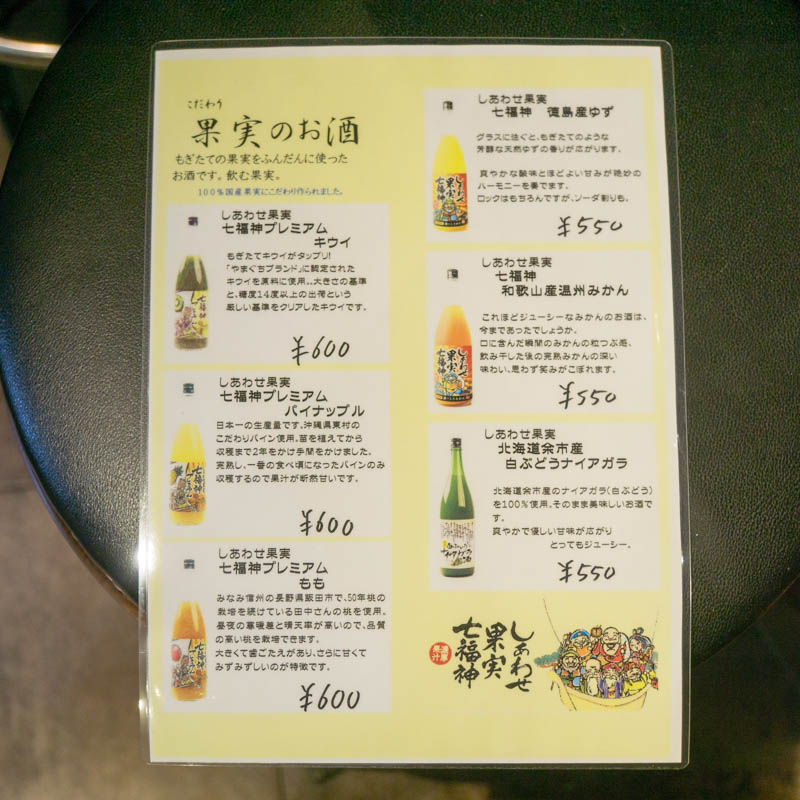 こだわり
果実のお酒
もぎたての果実をふんだんに使った
お酒です。飲む果実。
100%国産果実にこだわり作られました。
しあわせ果実
七福神プレミアム
キウイ
もぎたてキウイがタップリ!
「やまぐちブランド」に認定された
キウイを原料に使用。大きさの基準
と、糖度14度以上の出荷という
厳しい基準をクリアしたキウイです。
¥600
しあわせ果実
七福神プレミアム
パイナップル
日本一の生産量です。沖縄県東村の
こだわりパイン使用。苗を植えてから
収穫まで2年をかけ手間をかけました。
完熟し、一番の食べ頃になったパインのみ
収穫するので果汁が断然甘いです。
¥600
しあわせ果実
七福神プレミアム
もも
みなみ信州の長野県飯田市で、50年桃の
栽培を続けている田中さんの桃を使用。
昼夜の寒暖差と晴天率が高いので、品質
の高い桃を栽培できます。
大きくて歯ごたえがあり、さらに甘くて
みずみずしいのが特徴です。
¥600
しあわせ果実
七福神 徳島産ゆず
グラスに注ぐと、もぎたてのような
芳醇な天然ゆずの香りが広がります。
爽やかな酸味とほどよい甘みが絶妙の
ハーモニーを奏でます。
ロックはもちろんですが、ソーダ割りも。
¥550
しあわせ果実
七福神
和歌山産温州みかん
これほどジューシーなみかんのお酒は、
今まであったでしょうか。
口に含んだ瞬間のみかんの粒つぶ感、
飲み干した後の完熟みかんの深い
味わい、思わず笑みがこぼれます。
¥550
しあわせ果実
北海道余市産
白ぶどうナイアガラ
北海道余市産のナイアガラ(白ぶどう)
を100%使用。そのまま美味しいお酒で
す。
爽やかで優しい甘味が広がり
とってもジューシー。
¥550
しあわせ
果実
七福神